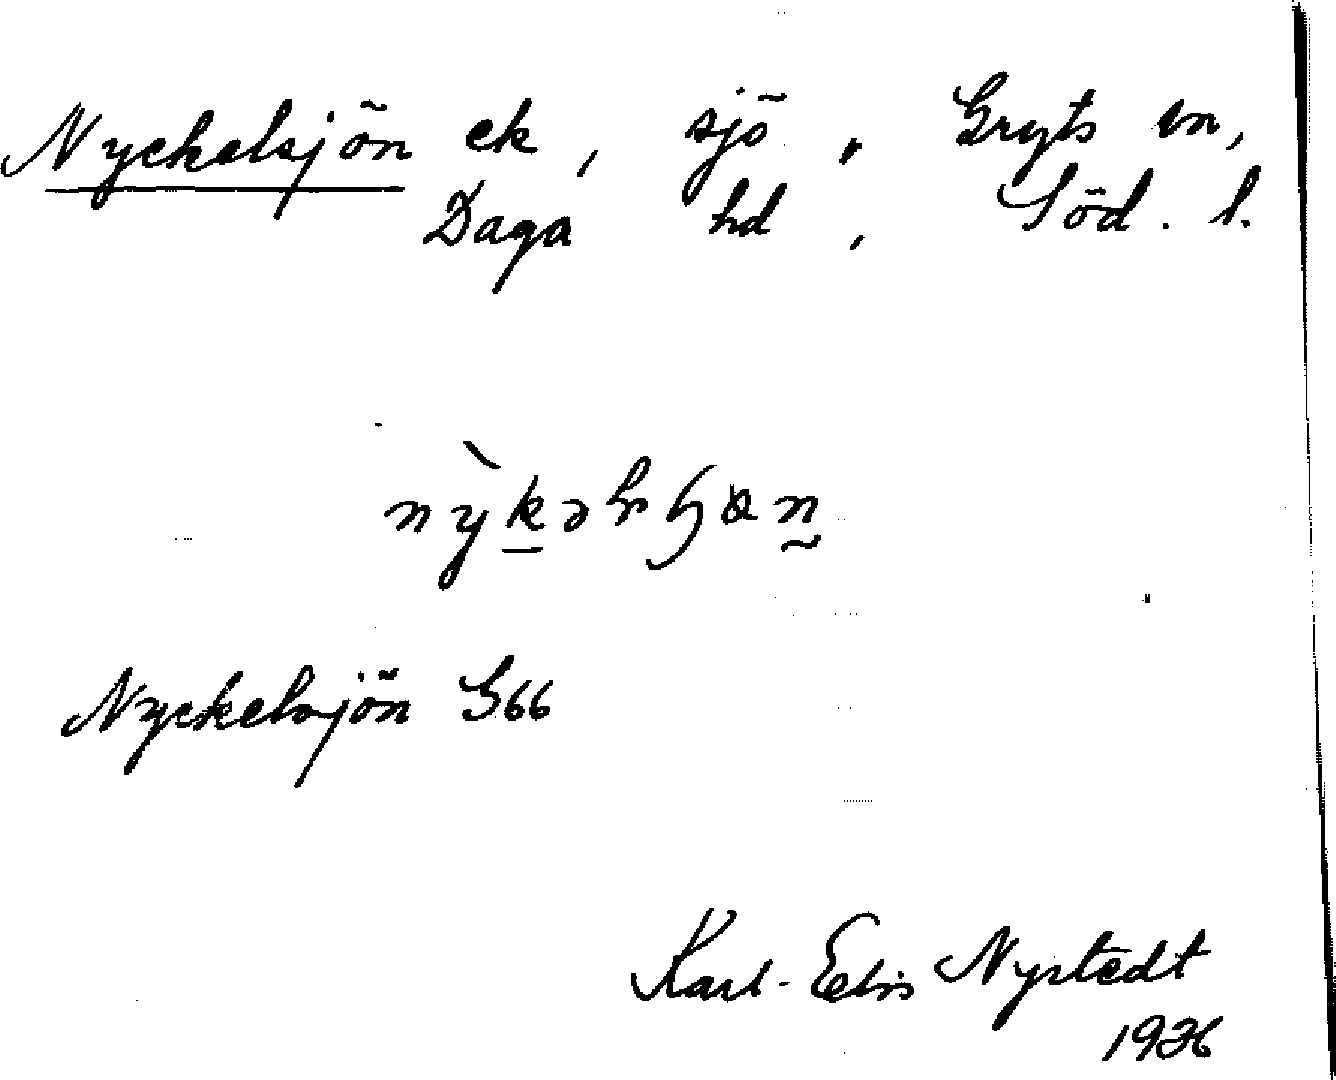 Nyckelsjön ek, sjö, Gryts sn,
Daga hd, Söd. l.
Nyckelsjön G66
Karl-Elis Nystedt
1936